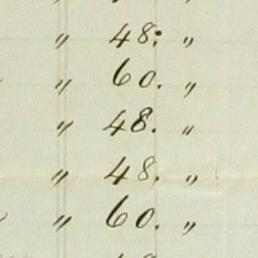 " 48. "
" 60. "
" 48. "
" 48. "
" 60. "